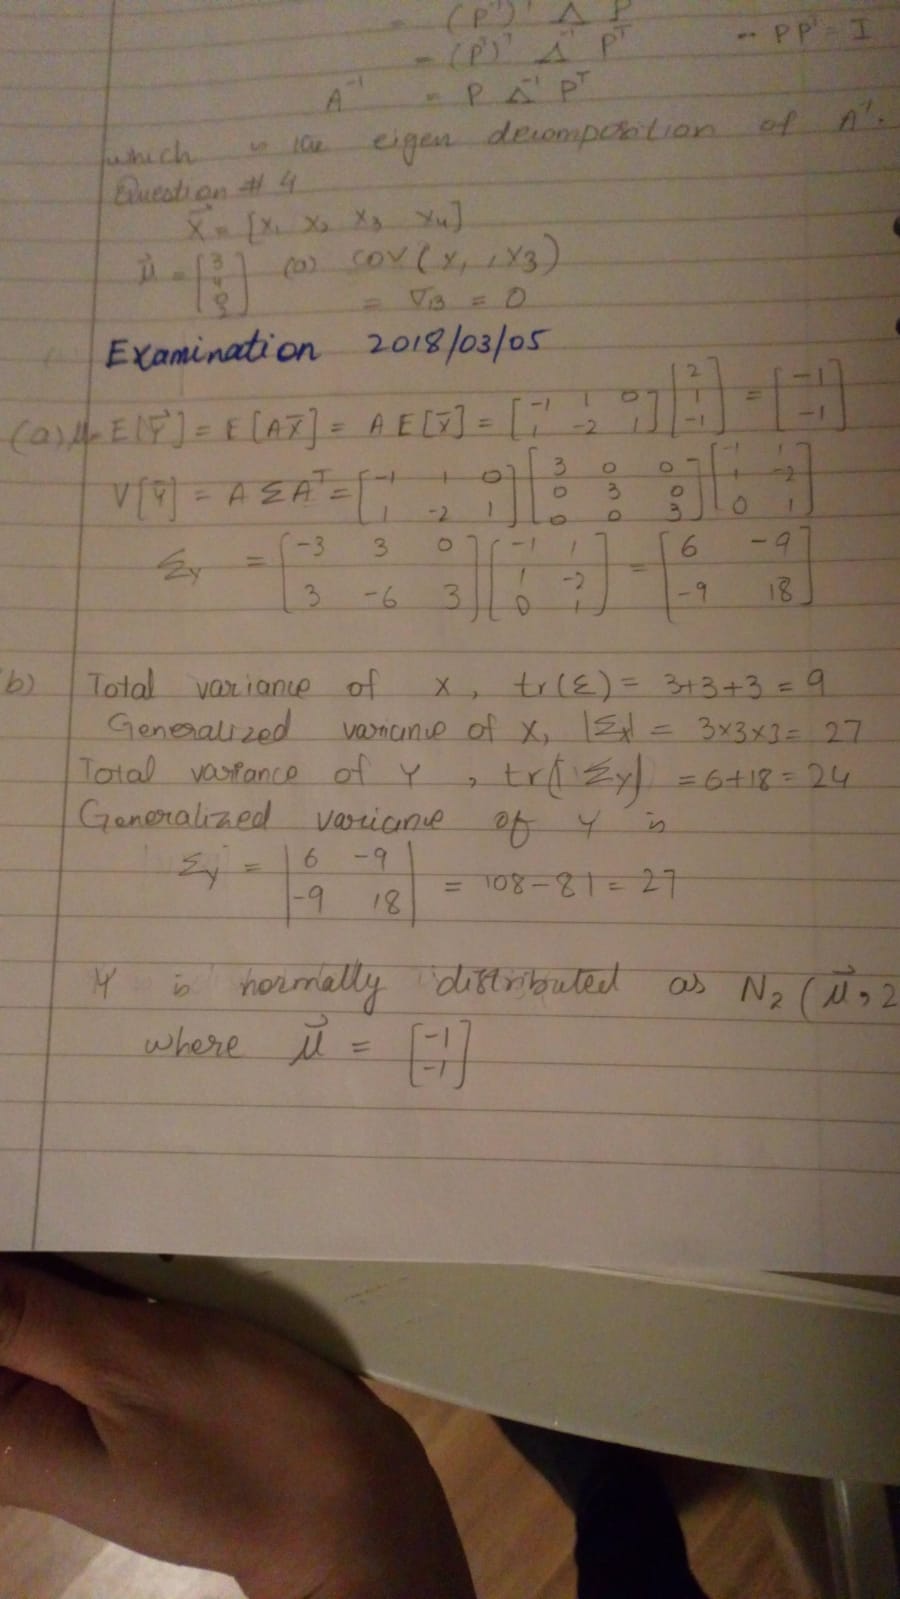 = (P^-1)^1 Λ P
= (P^T)^T Λ^-1 P^T -- PP^T = I
A^-1 = P Λ^-1 P^T
which is the eigen decomposition of A^-1.
Question # 4
X = [X1 X2 X3 X4]
μ = [3 4 (a) COV(X1, X3)
= σ13 = 0
Examination 2018/03/05
(a) E[Y] = E[AX] = A E[X] = [-1 1 0; 1 -2 1] [2; 1; -1] = [-1; -1]
V[Y] = A Σ A^T = [-1 1 0; 1 -2 1] [3 0 0; 0 3 0; 0 0 3] [-1 1; 1 -2; 0 1]
Σy = [-3 3 0; 3 -6 3] [-1 1; 1 -2; 0 1] = [6 -9; -9 18]
b) Total variance of X, tr(Σ) = 3+3+3 = 9
Generalized variance of X, |Σx| = 3×3×3 = 27
Total variance of Y, tr(Σy) = 6+18 = 24
Generalized variance of Y is
Σy = |6 -9; -9 18| = 108-81 = 27
Y is normally distributed as N2 (μ,
where μ = [-1; -1]